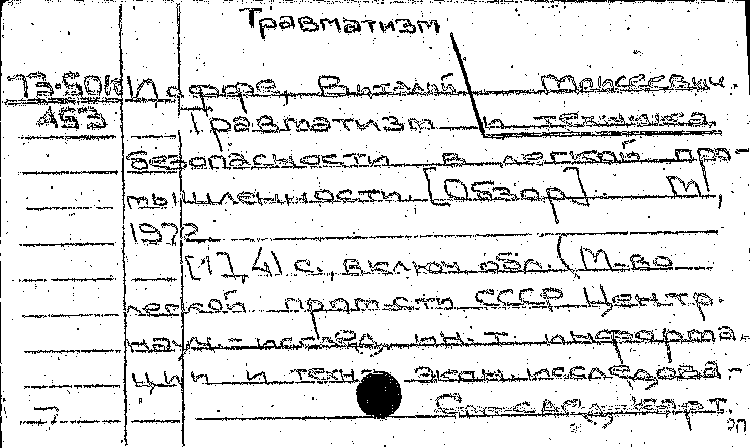 Травматизм
73-50К Иоффе, Виталий Моисеевич.
453 Травматизм и техника
безопасности в легкой про-
мышленности. [Обзор]. М,
1972
[1], 41 с., включ. обл. (М-во
легкой пром-сти СССР Центр.
науч.-исслед. ин.т. информа-
ции и техн- экон. исследова-
См. след. карт.